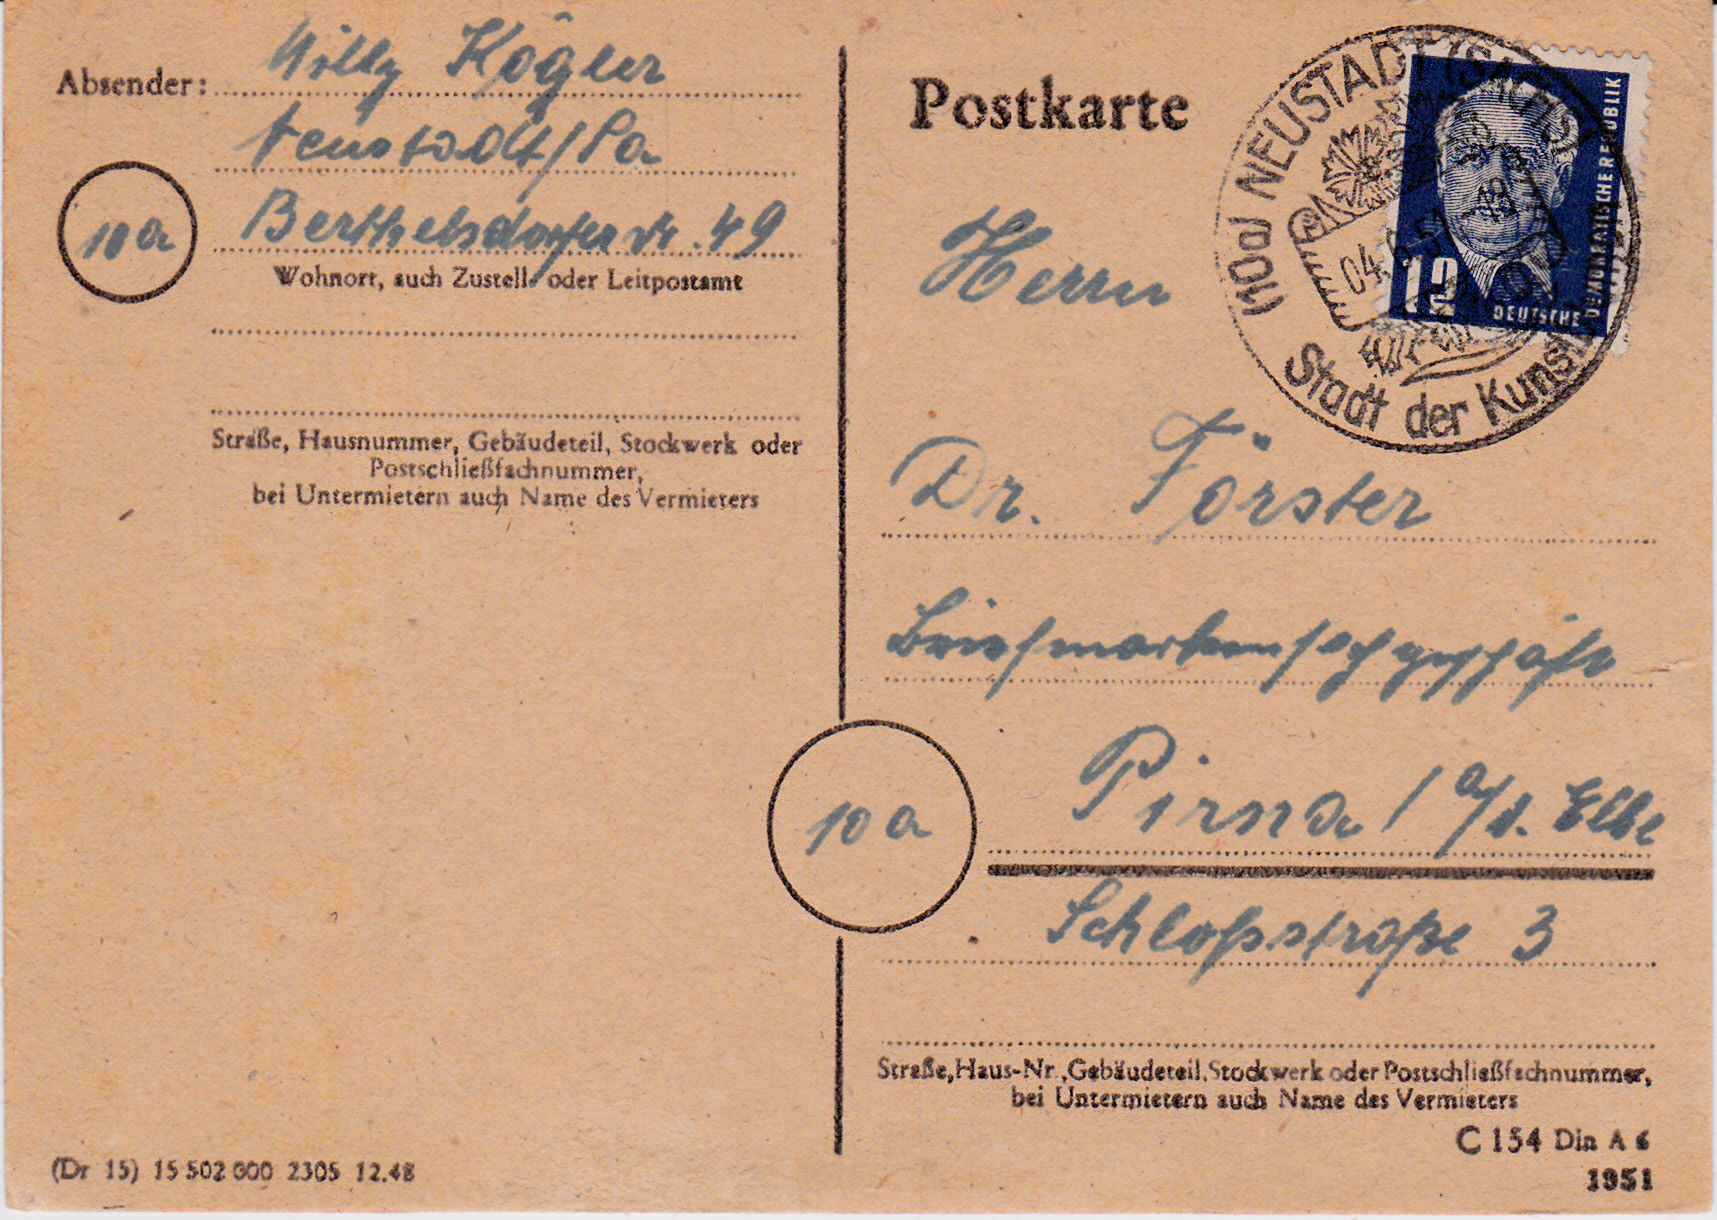 Absender: Willy Kögler
Neustadt/Sa
10a
Berthelsdorferstr. 49
Wohnort, auch Zustell- oder Leitpostamt
Straße, Hausnummer, Gebäudeteil, Stockwerk oder
Postschließfachnummer,
bei Untermietern auch Name des Vermieters
(Dr 15) 15 502 000 2305 12.48
Postkarte
(10a) NEUSTADT (SACHS)
04. 51
Stadt der Kunst
12
DEUTSCHE DEMOKRATISCHE REPUBLIK
Herrn
Dr. Förster
Briefmarkenfachgeschäft
10a
Pirna / a/d. Elbe
Schloßstraße 3
Straße, Haus-Nr., Gebäudeteil, Stockwerk oder Postschließfachnummer,
bei Untermietern auch Name des Vermieters
C 154 Din A 6
1951